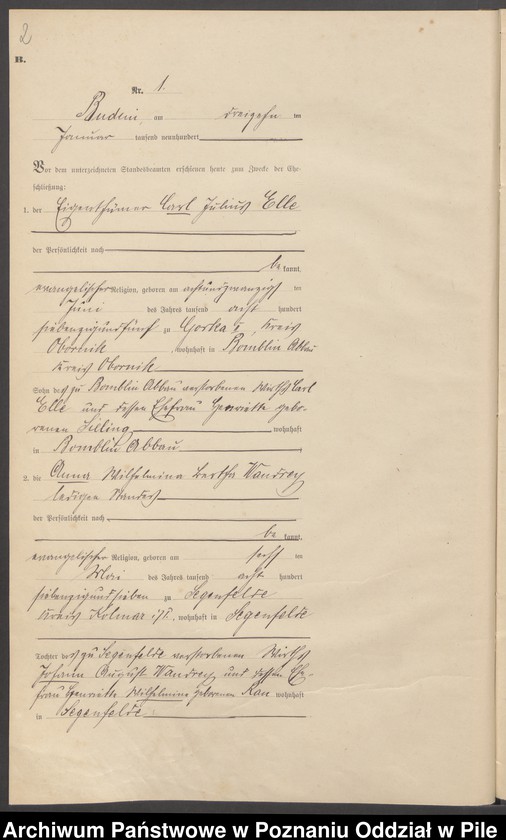 2
B.
Nr. 1.
Budsin, am dreizehn ten
Januar tausend neunhundert
Vor dem unterzeichneten Standesbeamten erschienen heute zum Zwecke der Ehe-
schließung:
1. der Eigenthümer Carl Julius Elle
der Persönlichkeit nach
be kannt,
evangelischer Religion, geboren am achtundzwanzigs ten
Juni des Jahres tausend acht hundert
siebenzigundfünf zu Gorka I, Kreis
Obornik, wohnhaft in Bomblin Abbau
Kreis Obornik
Sohn des zu Bomblin Abbau verstorbenen Wirths Carl
Elle und dessen Ehefrau Henriette gebo-
renen wohnhaft
in Bomblin Abbau
2. die Anna Wilhelmina Bertha Wandrey
ledigen Standes
der Persönlichkeit nach
be kannt,
evangelischer Religion, geboren am sechs ten
Mai des Jahres tausend acht hundert
siebenzigundsieben zu Segenfelde
Kreis Kolmar i/P., wohnhaft in Segenfelde
Tochter des zu Segenfelde verstorbenen Wirths
Johann August Wandrey und dessen Ehe-
frau Henriette Wilhelmine geborenen Rau wohnhaft
in Segenfelde
Archiwum Państwowe w Poznaniu Oddział w Pile